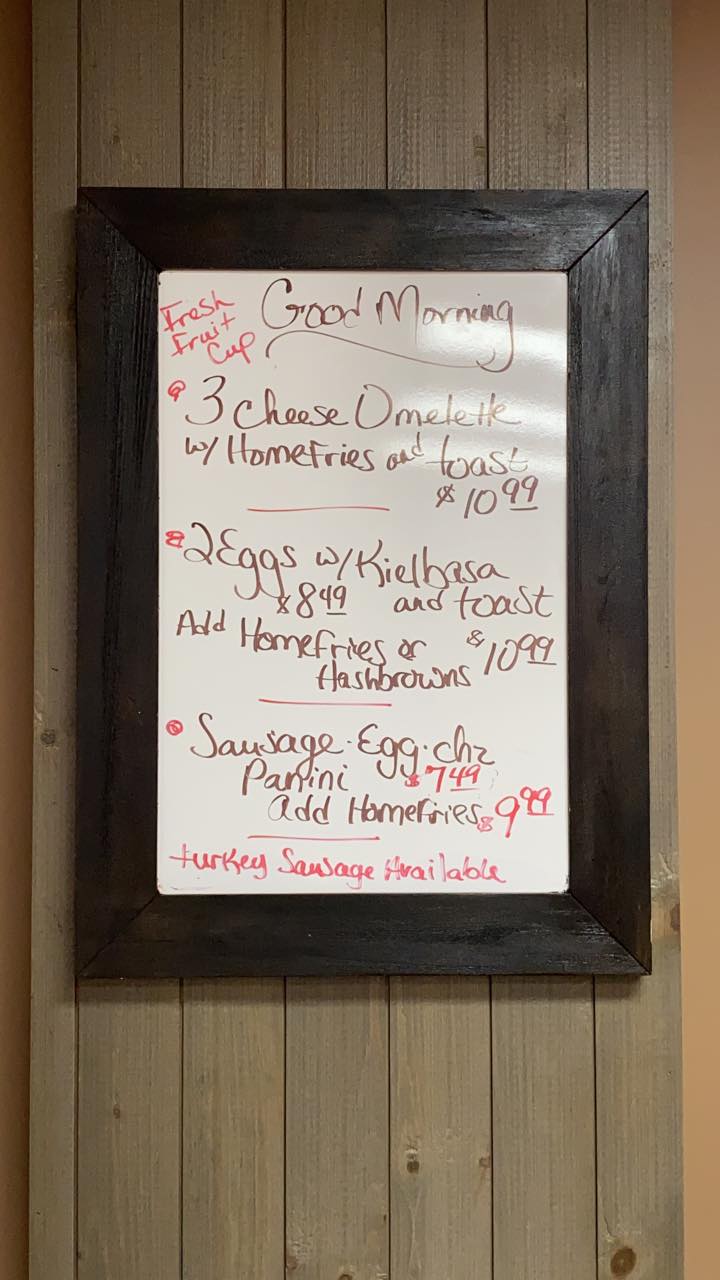 Fresh
Fruit
Cup
Good Morning
3 cheese Omelette
w/ Homefries and toast
$10.99
2 Eggs w/ Kielbasa
$8.49 and toast
Add Homefries or $10.99
Hashbrowns
Sausage·Egg·chz
Panini $7.49
add Homefries $9.99
turkey Sausage Available